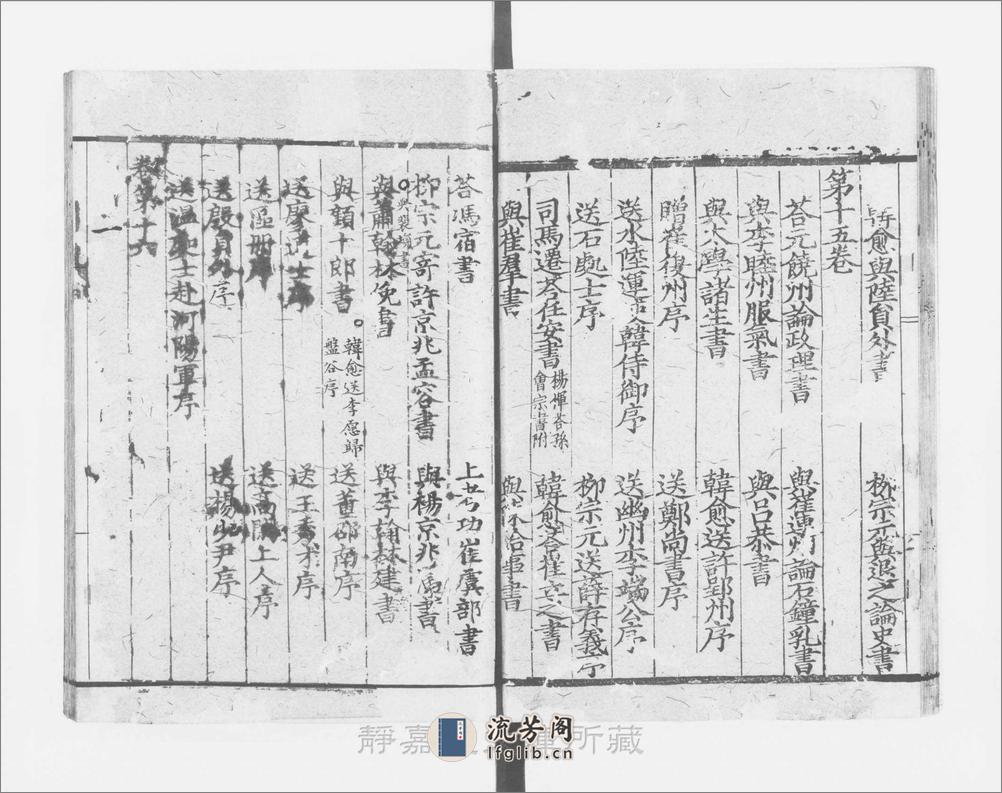 韓愈與陸員外書　柳宗元與退之論史書
第十五卷
荅元饒州論政理書　與崔連州論石鐘乳書
與李睦州服氣書　與呂恭書
與太學諸生書　韓愈送許郢州序
贈崔復州序　送鄭尚書序
送水陸運使韓侍御序　送幽州李端公序
送石處士序　柳宗元送薛存義序
司馬遷荅任安書　楊惲荅孫會宗書附　韓愈荅崔立之書
與崔羣書
荅馮宿書　上考功崔虞部書
柳宗元寄許京兆孟容書　與楊京兆憑書
與蕭翰林俛書　與李翰林建書
與顗十郎書。韓愈送李愿歸盤谷序　送董邵南序
送廖道士序　送王秀才序
送區册序　送高閑上人序
送殷員外序　送楊少尹序
送溫處士赴河陽軍序
卷第十六
二
靜嘉　所藏
流芳阁
lfglib.cn